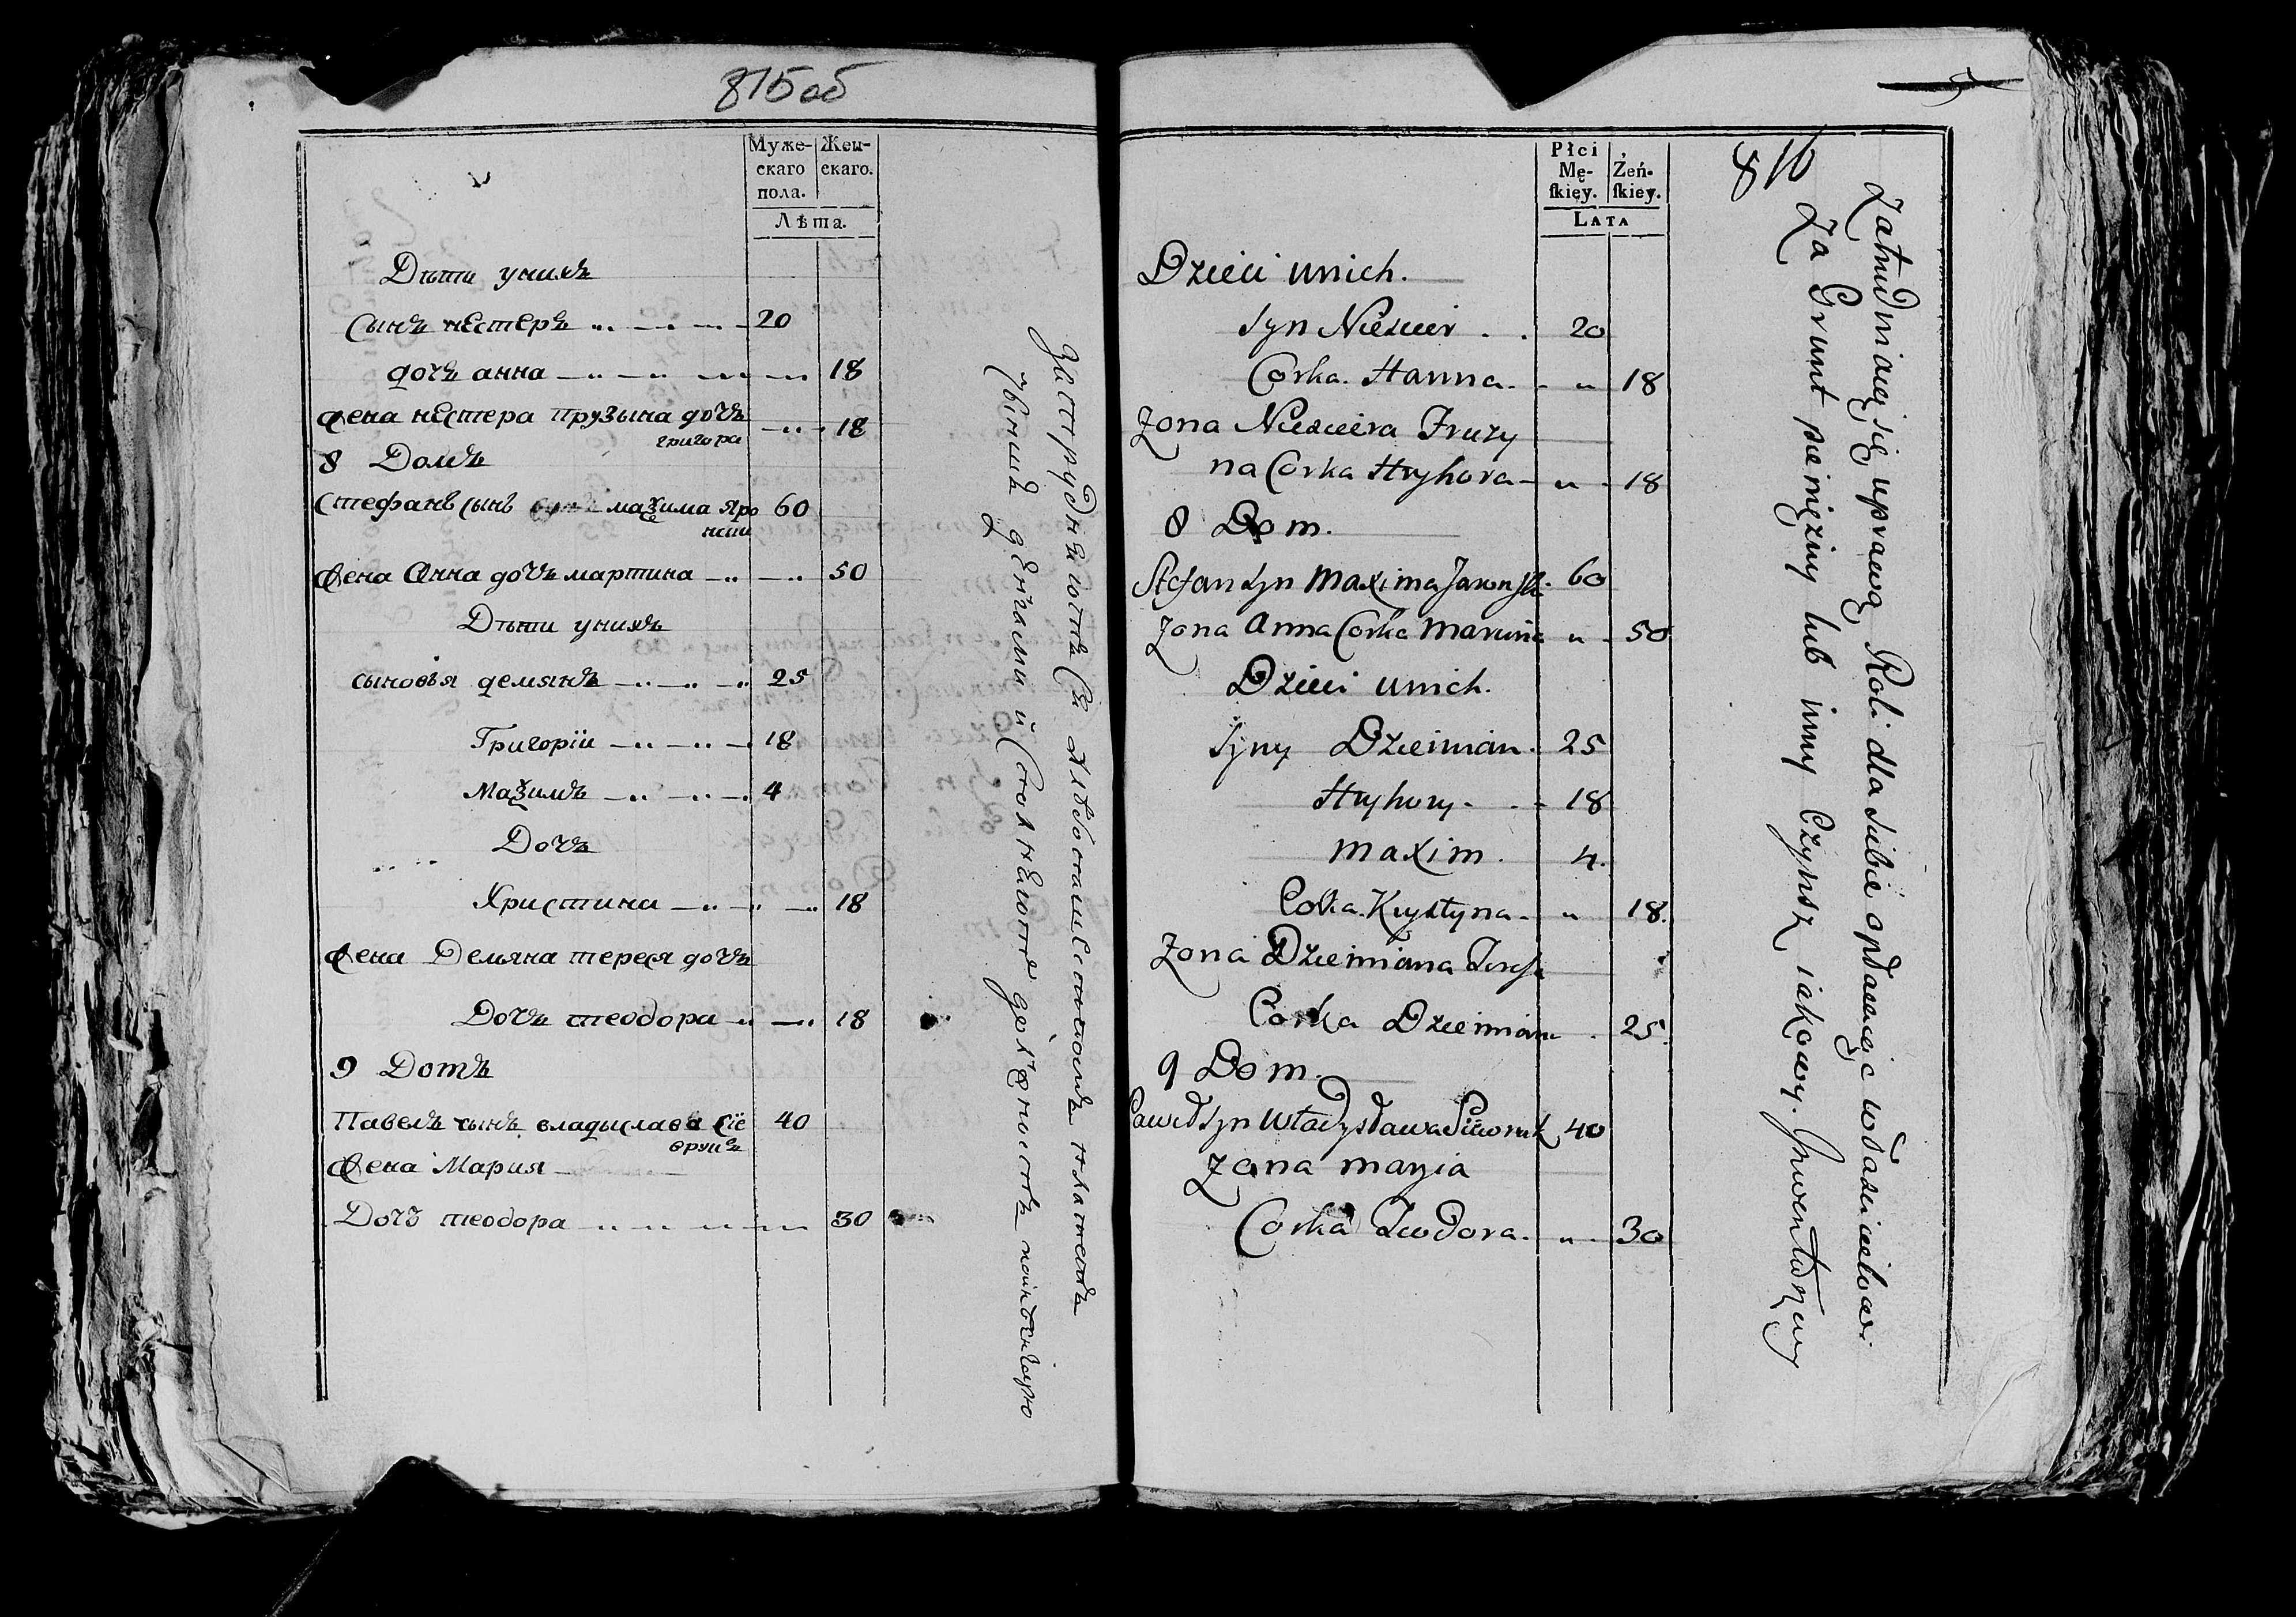 815об
Муже-
скаго
пола.
Жен-
скаго.
Лѣта.
Дѣти унихъ
Сынъ нестеръ 20
дочъ анна 18
Жена нестера прузына дочъ 18
григора
8 Домъ
Стефанъ сынъ маѯима Яро 60
Жена Анна дочъ мартина 50
Дѣти унихъ
сыновья демянъ 25
Григоріи 18
Маѯимъ 4
Дочъ
Христина 18
Жена Демяна тереся дочъ
Дочъ теодора 18
9 Домъ
Павелъ сынъ владыслава Сіе 40
Жена Мария
Дочъ теодора 30
816
Płci
Mę-
ſkięy.
Żeń-
ſkiey.
LATA
Dzieci unich.
Syn Niescier 20
Corka Hanna 18
Zona Niesciera Pruzy
na Corka Hryhora 18
8 Dom.
Stefan Syn Maxima 60
Zona Anna Corka Marcina 50
Dzieci unich.
Syny Dziemian 25
Hryhory 18
Maxim. 4.
Corka Krystyna 18.
Zona Dziemiana
Corka Dziemiana 25.
9 Dom.
Paweł Syn Władysława 40
Zona Maryia
Corka Teodora. 30
Zatrudniaiąc się uprawą Roli dla siebie opłacaiąc właścicielowi
Za Grunt pieniężny lub inny Czynsz iakowy.